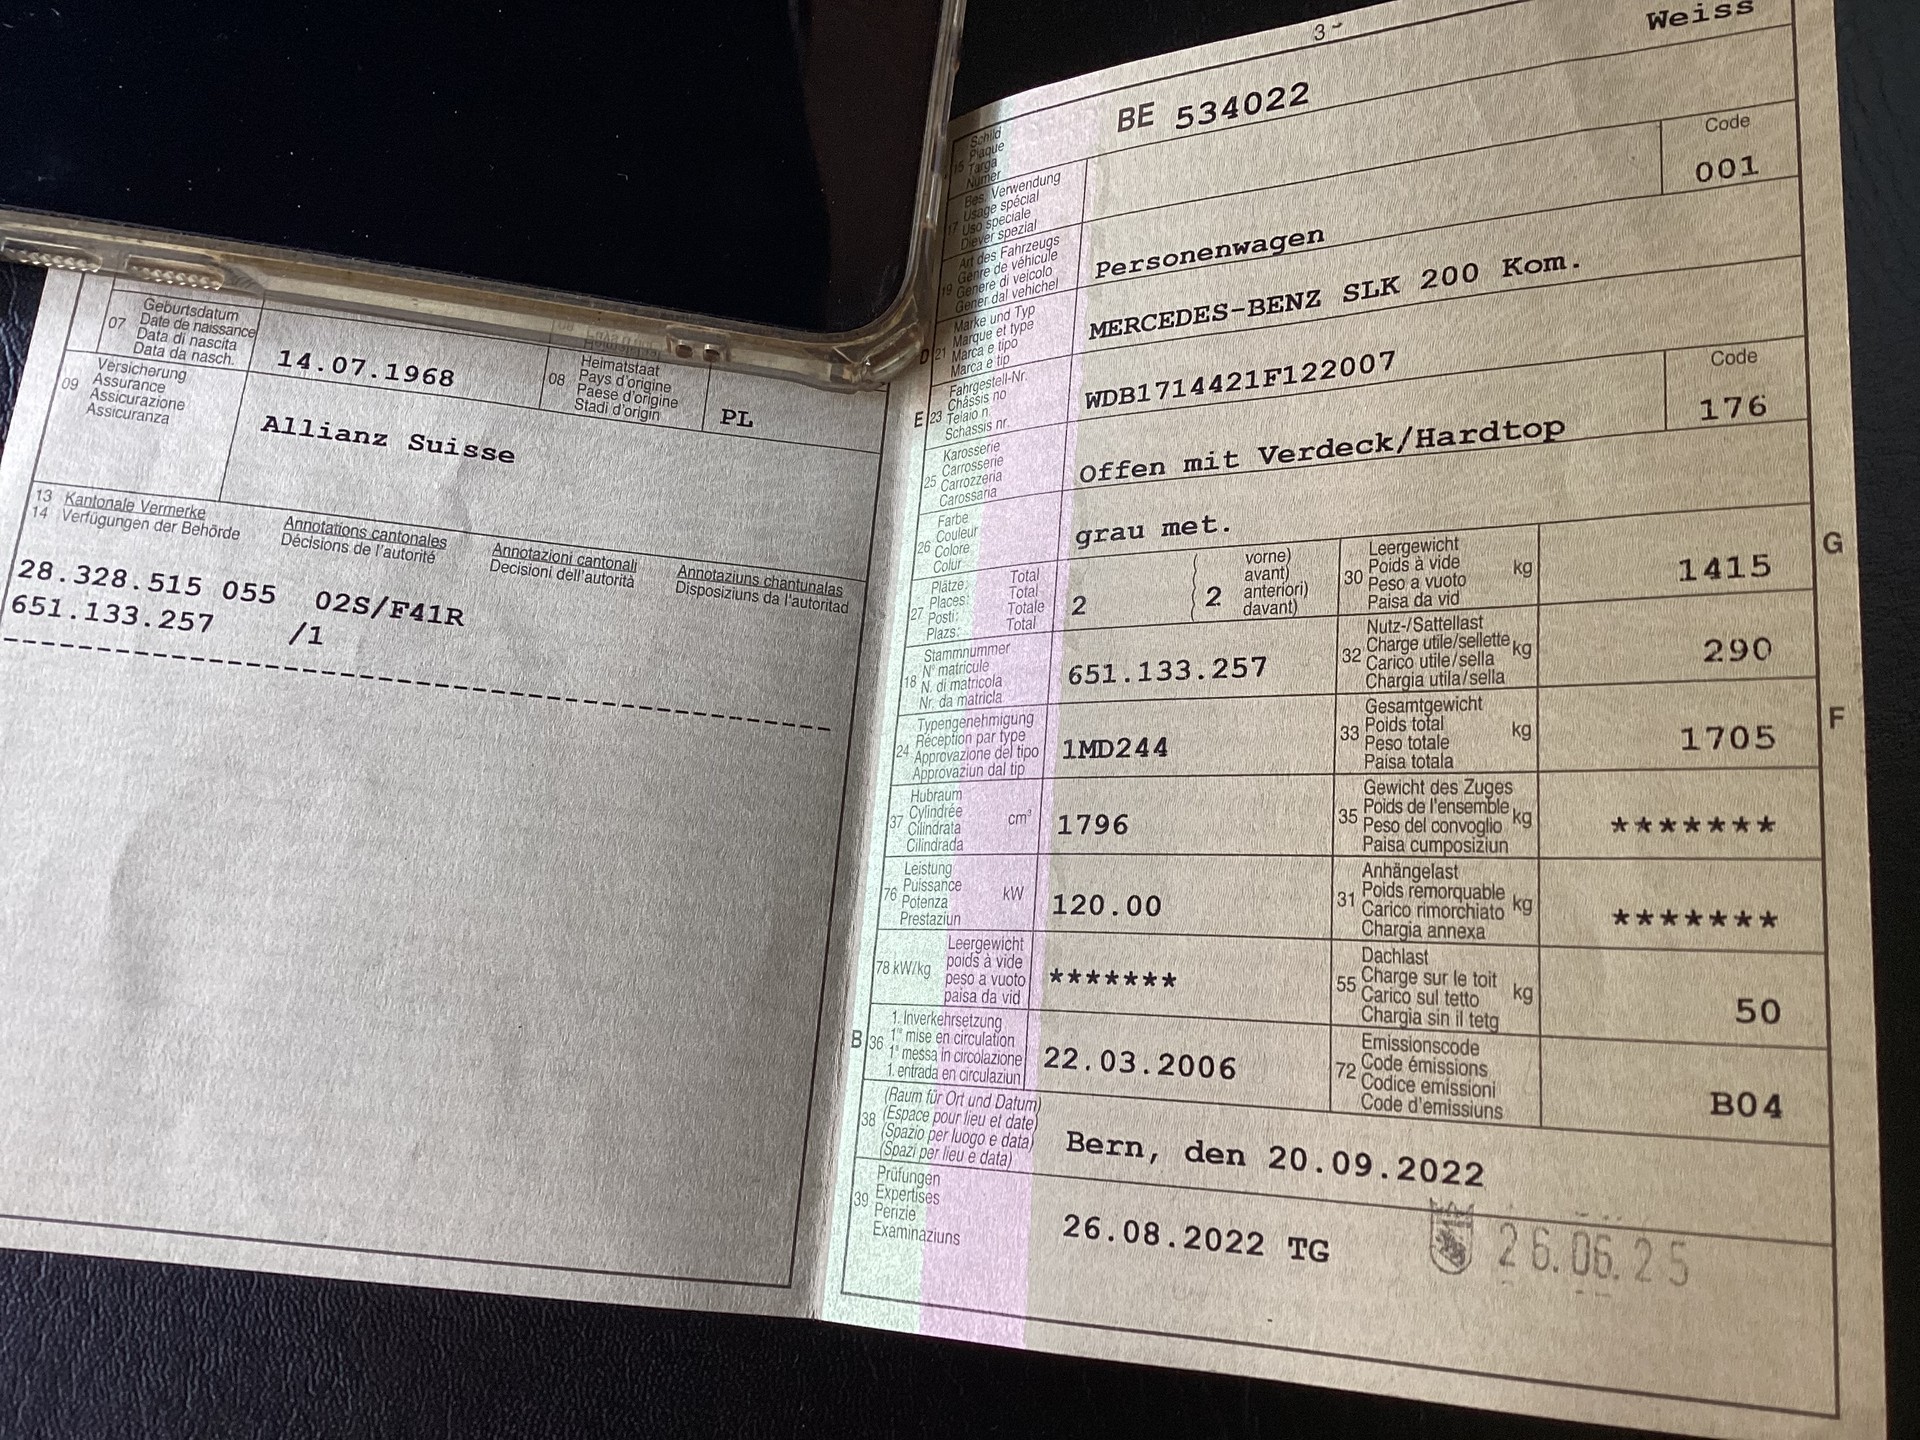 07
Geburtsdatum
Date de naissance
Data di nascita
Data da nasch.
14.07.1968
08
Heimatstaat
Pays d'origine
Paese d'origine
Stadi d'origin
PL
09
Versicherung
Assurance
Assicurazione
Assicuranza
Allianz Suisse
13 Kantonale Vermerke
14 Verfügungen der Behörde
Annotations cantonales
Décisions de l'autorité
Annotazioni cantonali
Decisioni dell'autorità
Annotaziuns chantunalas
Disposiziuns da l'autoritad
28.328.515 055 02S/F41R
651.133.257 /1
3
Weiss
15
Schild
Plaque
Targa
Numer
BE 534022
17
Bes. Verwendung
Usage spécial
Uso speciale
Diever spezial
Code
001
19
Art des Fahrzeugs
Genre de véhicule
Genere di veicolo
Gener dal vehichel
Personenwagen
D 21
Marke und Typ
Marque et type
Marca e tipo
Marca e tip
MERCEDES-BENZ SLK 200 Kom.
E 23
Fahrgestell-Nr.
Châssis no
Telaio n.
Schassis nr.
WDB1714421F122007
25
Karosserie
Carrosserie
Carrozzeria
Carossaria
Offen mit Verdeck/Hardtop
Code
176
26
Farbe
Couleur
Colore
Colur
grau met.
27
Plätze: Total
Places: Total
Posti: Totale
Plazs: Total
2
2
vorne)
avant)
anteriori)
davant)
30
Leergewicht
Poids à vide
Peso a vuoto
Paisa da vid
kg
1415
G
18
Stammnummer
N° matricule
N. di matricola
Nr. da matricla
651.133.257
32
Nutz-/Sattellast
Charge utile/sellette
Carico utile/sella
Chargia utila/sella
kg
290
24
Typengenehmigung
Réception par type
Approvazione del tipo
Approvaziun dal tip
1MD244
33
Gesamtgewicht
Poids total
Peso totale
Paisa totala
kg
1705
F
37
Hubraum
Cylindrée
Cilindrata
Cilindrada
cm³
1796
35
Gewicht des Zuges
Poids de l'ensemble
Peso del convoglio
Paisa cumposiziun
kg
*******
76
Leistung
Puissance
Potenza
Prestaziun
kW
120.00
31
Anhängelast
Poids remorquable
Carico rimorchiato
Chargia annexa
kg
*******
78 kW/kg
Leergewicht
poids à vide
peso a vuoto
paisa da vid
*******
55
Dachlast
Charge sur le toit
Carico sul tetto
Chargia sin il tetg
kg
50
B 36
1. Inverkehrsetzung
1re mise en circulation
1a messa in circolazione
1. entrada en circulaziun
22.03.2006
72
Emissionscode
Code émissions
Codice emissioni
Code d'emissiuns
B04
38
(Raum für Ort und Datum)
(Espace pour lieu et date)
(Spazio per luogo e data)
(Spazi per lieu e data)
Bern, den 20.09.2022
39
Prüfungen
Expertises
Perizie
Examinaziuns
26.08.2022 TG
26.06.25